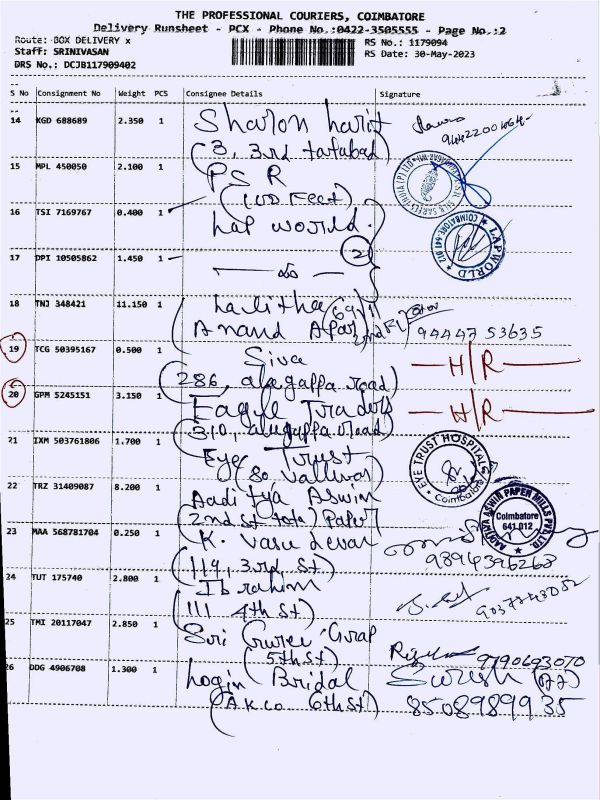 THE PROFESSIONAL COURIERS, COIMBATORE
Delivery Runsheet - PCX - Phone No.:0422-3505555 - Page No.:2
Route: BOX DELIVERY x
RS No.: 1179094
Staff: SRINIVASAN
RS Date: 30-May-2023
DRS No.: DCJB117909402
S No Consignment No Weight PCS Consignee Details Signature
14 KGD 688689 2.350 1 Sharon
(3, 3rd tatabad)
15 MPL 450050 2.100 1 PSR
(100 Feet)
16 TSI 7169767 0.400 1 Lap world
LAPWORLD
17 DPI 10505862 1.450 1 — do — 2
18 TNJ 348421 11.150 1 Lalitha
Anand 2nd Fl
94447 53635
19 TCG 50395167 0.500 1 Siva —H/R—
(286, alagappa road)
20 GPM 5245151 3.150 1 Eagle Traders —H/R—
(310, alagappa road)
21 IXM 503761806 1.700 1 Eye Trust
EYE TRUST HOSPITAL
Coimbatore
22 TRZ 31409087 8.200 1 Aaditya Aswin
(2nd St tata) Paper
AADITYA ASWIN PAPER MILLS PVT LTD.
Coimbatore
641 012
23 MAA 568781704 0.250 1 K. Vasudevan
(114, 3rd, St)
9894396268
24 TUT 175740 2.800 1 Ibrahim
(111 4th St)
25 TMI 20117047 2.850 1 Sri
(5th St)
9790693070
26 DDG 4906708 1.300 1 Login Bridal Suresh
(Akco 6th St) 8508989935